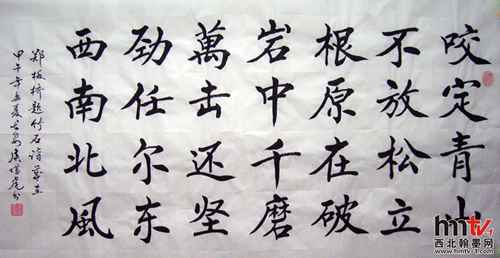 咬定青山
不放松立
根原在破
岩中千磨
萬击还坚
劲任尔东
西南北風
郑板桥题竹石诗
甲午年孟夏
西北翰墨网